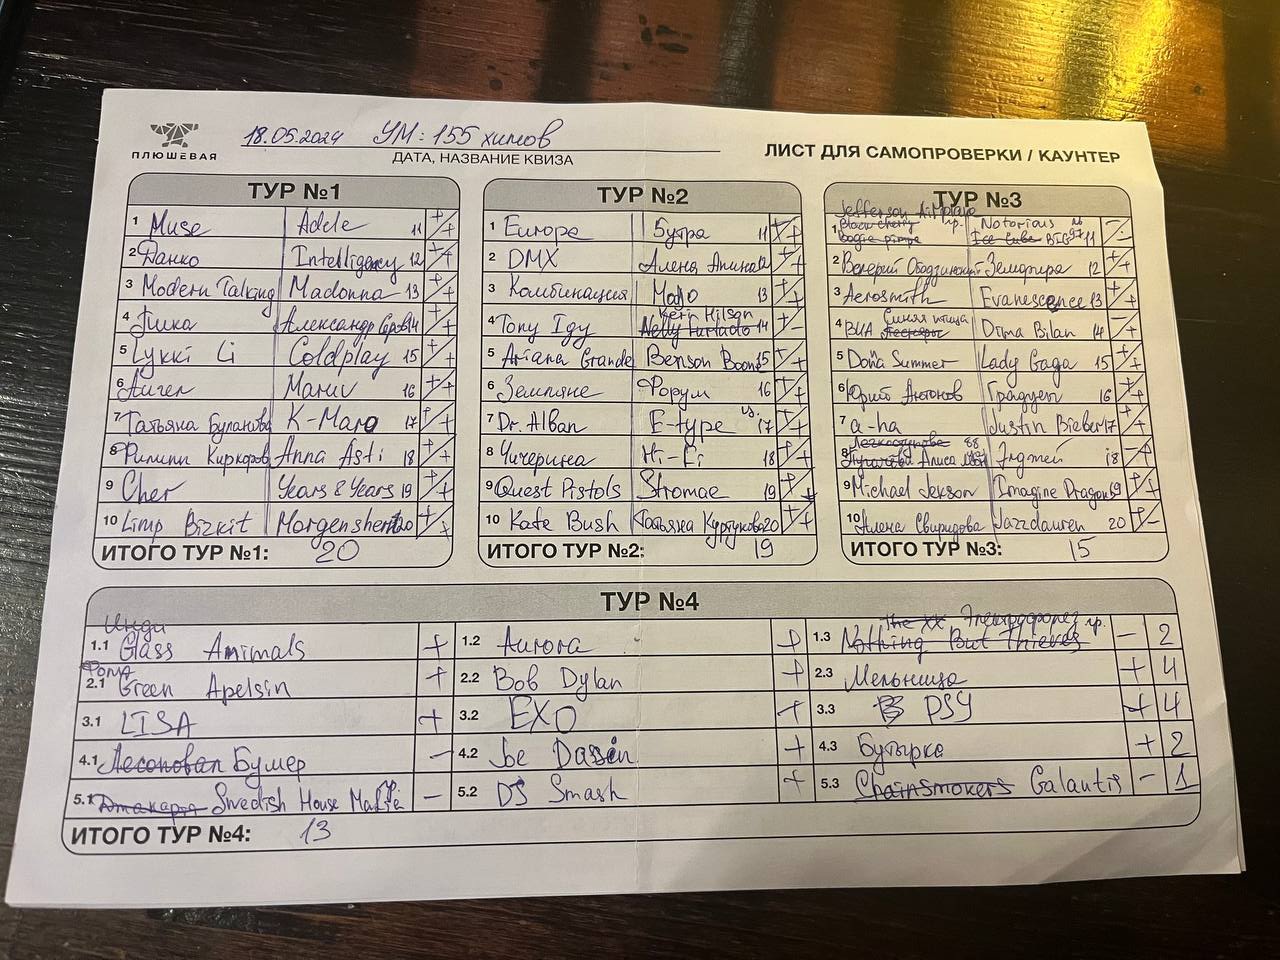 ПЛЮШЕВАЯ
18.05.2024 УМ: 155 хитов
ДАТА, НАЗВАНИЕ КВИЗА
ЛИСТ ДЛЯ САМОПРОВЕРКИ / КАУНТЕР
ТУР №1
1 Muse Adele 11 + +
2 Данко Intelligency 12 + +
3 Modern Talking Madonna 13 + +
4 Александр Серов 14 + +
5 Lykki Li Coldplay 15 + +
6 Ангел Maruv 16 + +
7 Татьяна Буланова K-Maro 17 + +
8 Филипп Киркоров Anna Asti 18 + +
9 Cher Years & Years 19 + +
10 Limp Bizkit Morgenshern 20 + +
ИТОГО ТУР №1: 20
ТУР №2
1 Europe Бутра 11 + +
2 DMX Алена Апина 12 + +
3 Комбинация Мало 13 + +
Keri Hilson
4 Tony Igy Nelly Furtado 14 + -
5 Ariana Grande Benson Boone 15 + +
6 Земляне Форум 16 + +
7 Dr. Alban E-type 17 + +
8 Чичерина Hi-Fi 18 + +
9 Quest Pistols Stromae 19 + +
10 Kate Bush Татьяна Куртукова 20 + +
ИТОГО ТУР №2: 19
ТУР №3
Jefferson Airplane
1 Notorious
Ice Cube BIG 11 - -
2 Валерий Ободзинский Земфира 12 + +
3 Aerosmith Evanescence 13 + +
Синяя птица
4 ВИА Песняры Dima Bilan 14 - +
5 Dona Summer Lady Gaga 15 + +
6 Юрий Антонов Градусы 16 + +
7 a-ha Justin Bieber 17 + +
8 Алиса Энджей 18 - +
9 Michael Jekson Imagine Dragons 19 + +
10 Алена Свиридова Jazzdauren 20 + -
ИТОГО ТУР №3: 15
ТУР №4
Инди
1.1 Glass Animals +
1.2 Aurora +
The XX Электрофорез
1.3 Nothing But Thieves - 2
Фолк
2.1 Green Apelsin +
2.2 Bob Dylan +
2.3 Мельница + 4
3.1 LISA +
3.2 EXO +
3.3 PSY + 4
4.1 Лесоповал Бумер -
4.2 Joe Dassin +
4.3 Бутырка + 2
5.1 Swedish House Mafia -
5.2 DJ Smash +
5.3 Chainsmokers Galantis - 1
ИТОГО ТУР №4: 13